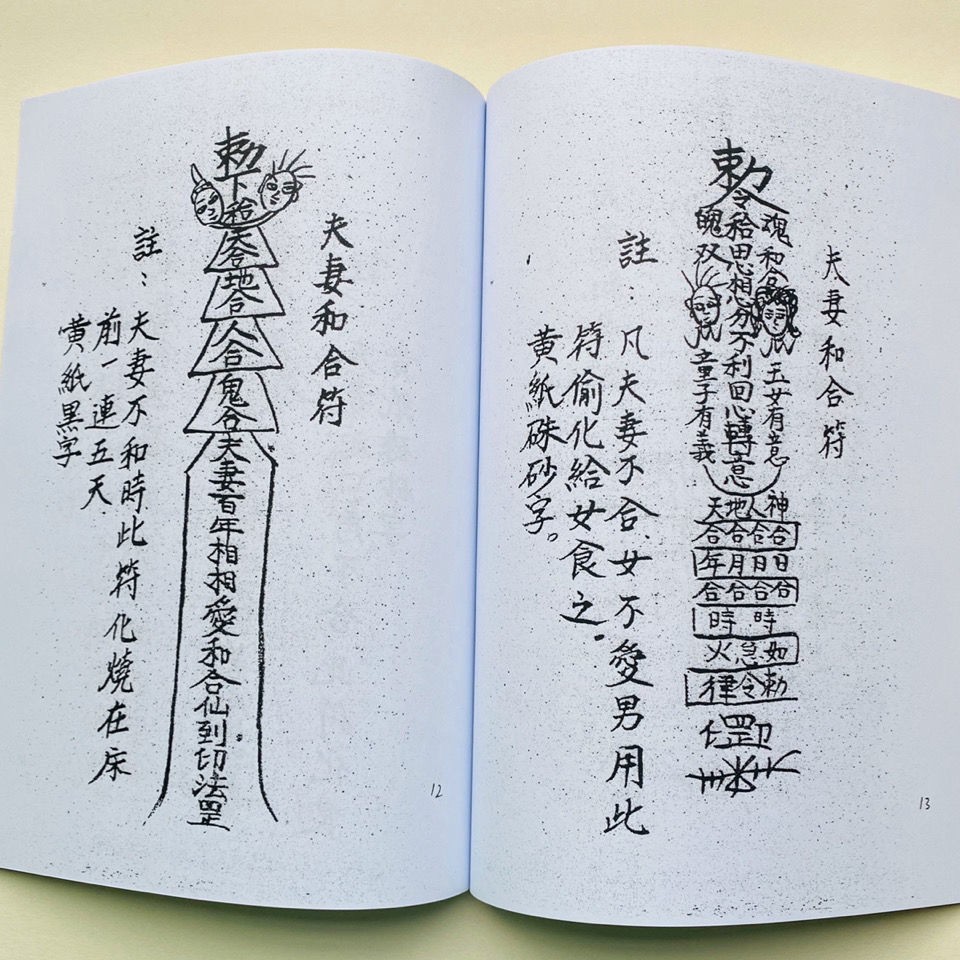 夫妻和合符
勅下
合
天合
地合
人合
鬼合
夫妻百年相相愛和合仙到切法罡
註：夫妻不和時此符化燒在床
前一連五天
黃紙黑字
12
夫妻和合符
勅令
魂和合
玉女有意
思想
不利回心轉意
魄双
童子有義
天地人神
合合合合
年月日日
合合合合
時時
火急如
律令勅
罡
註：凡夫妻不合、女不愛男用此
符偷化給女食之。
黃紙硃砂字。
13